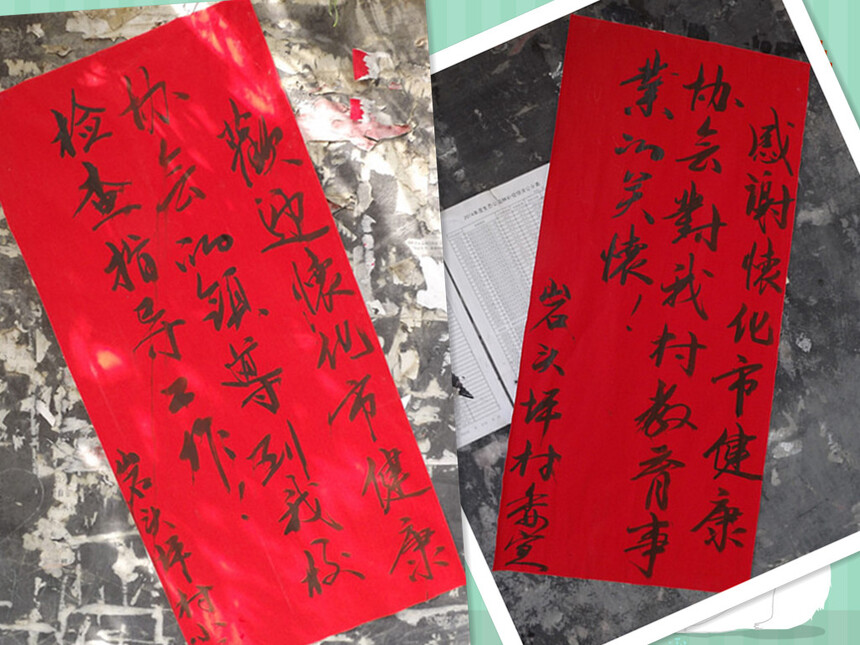 歡迎懷化市健康
协会的領导到我校
检查指导工作！
岩头坪村小
感谢懷化市健康
协会對我村教育事
業的关懷！
岩头坪村委宣